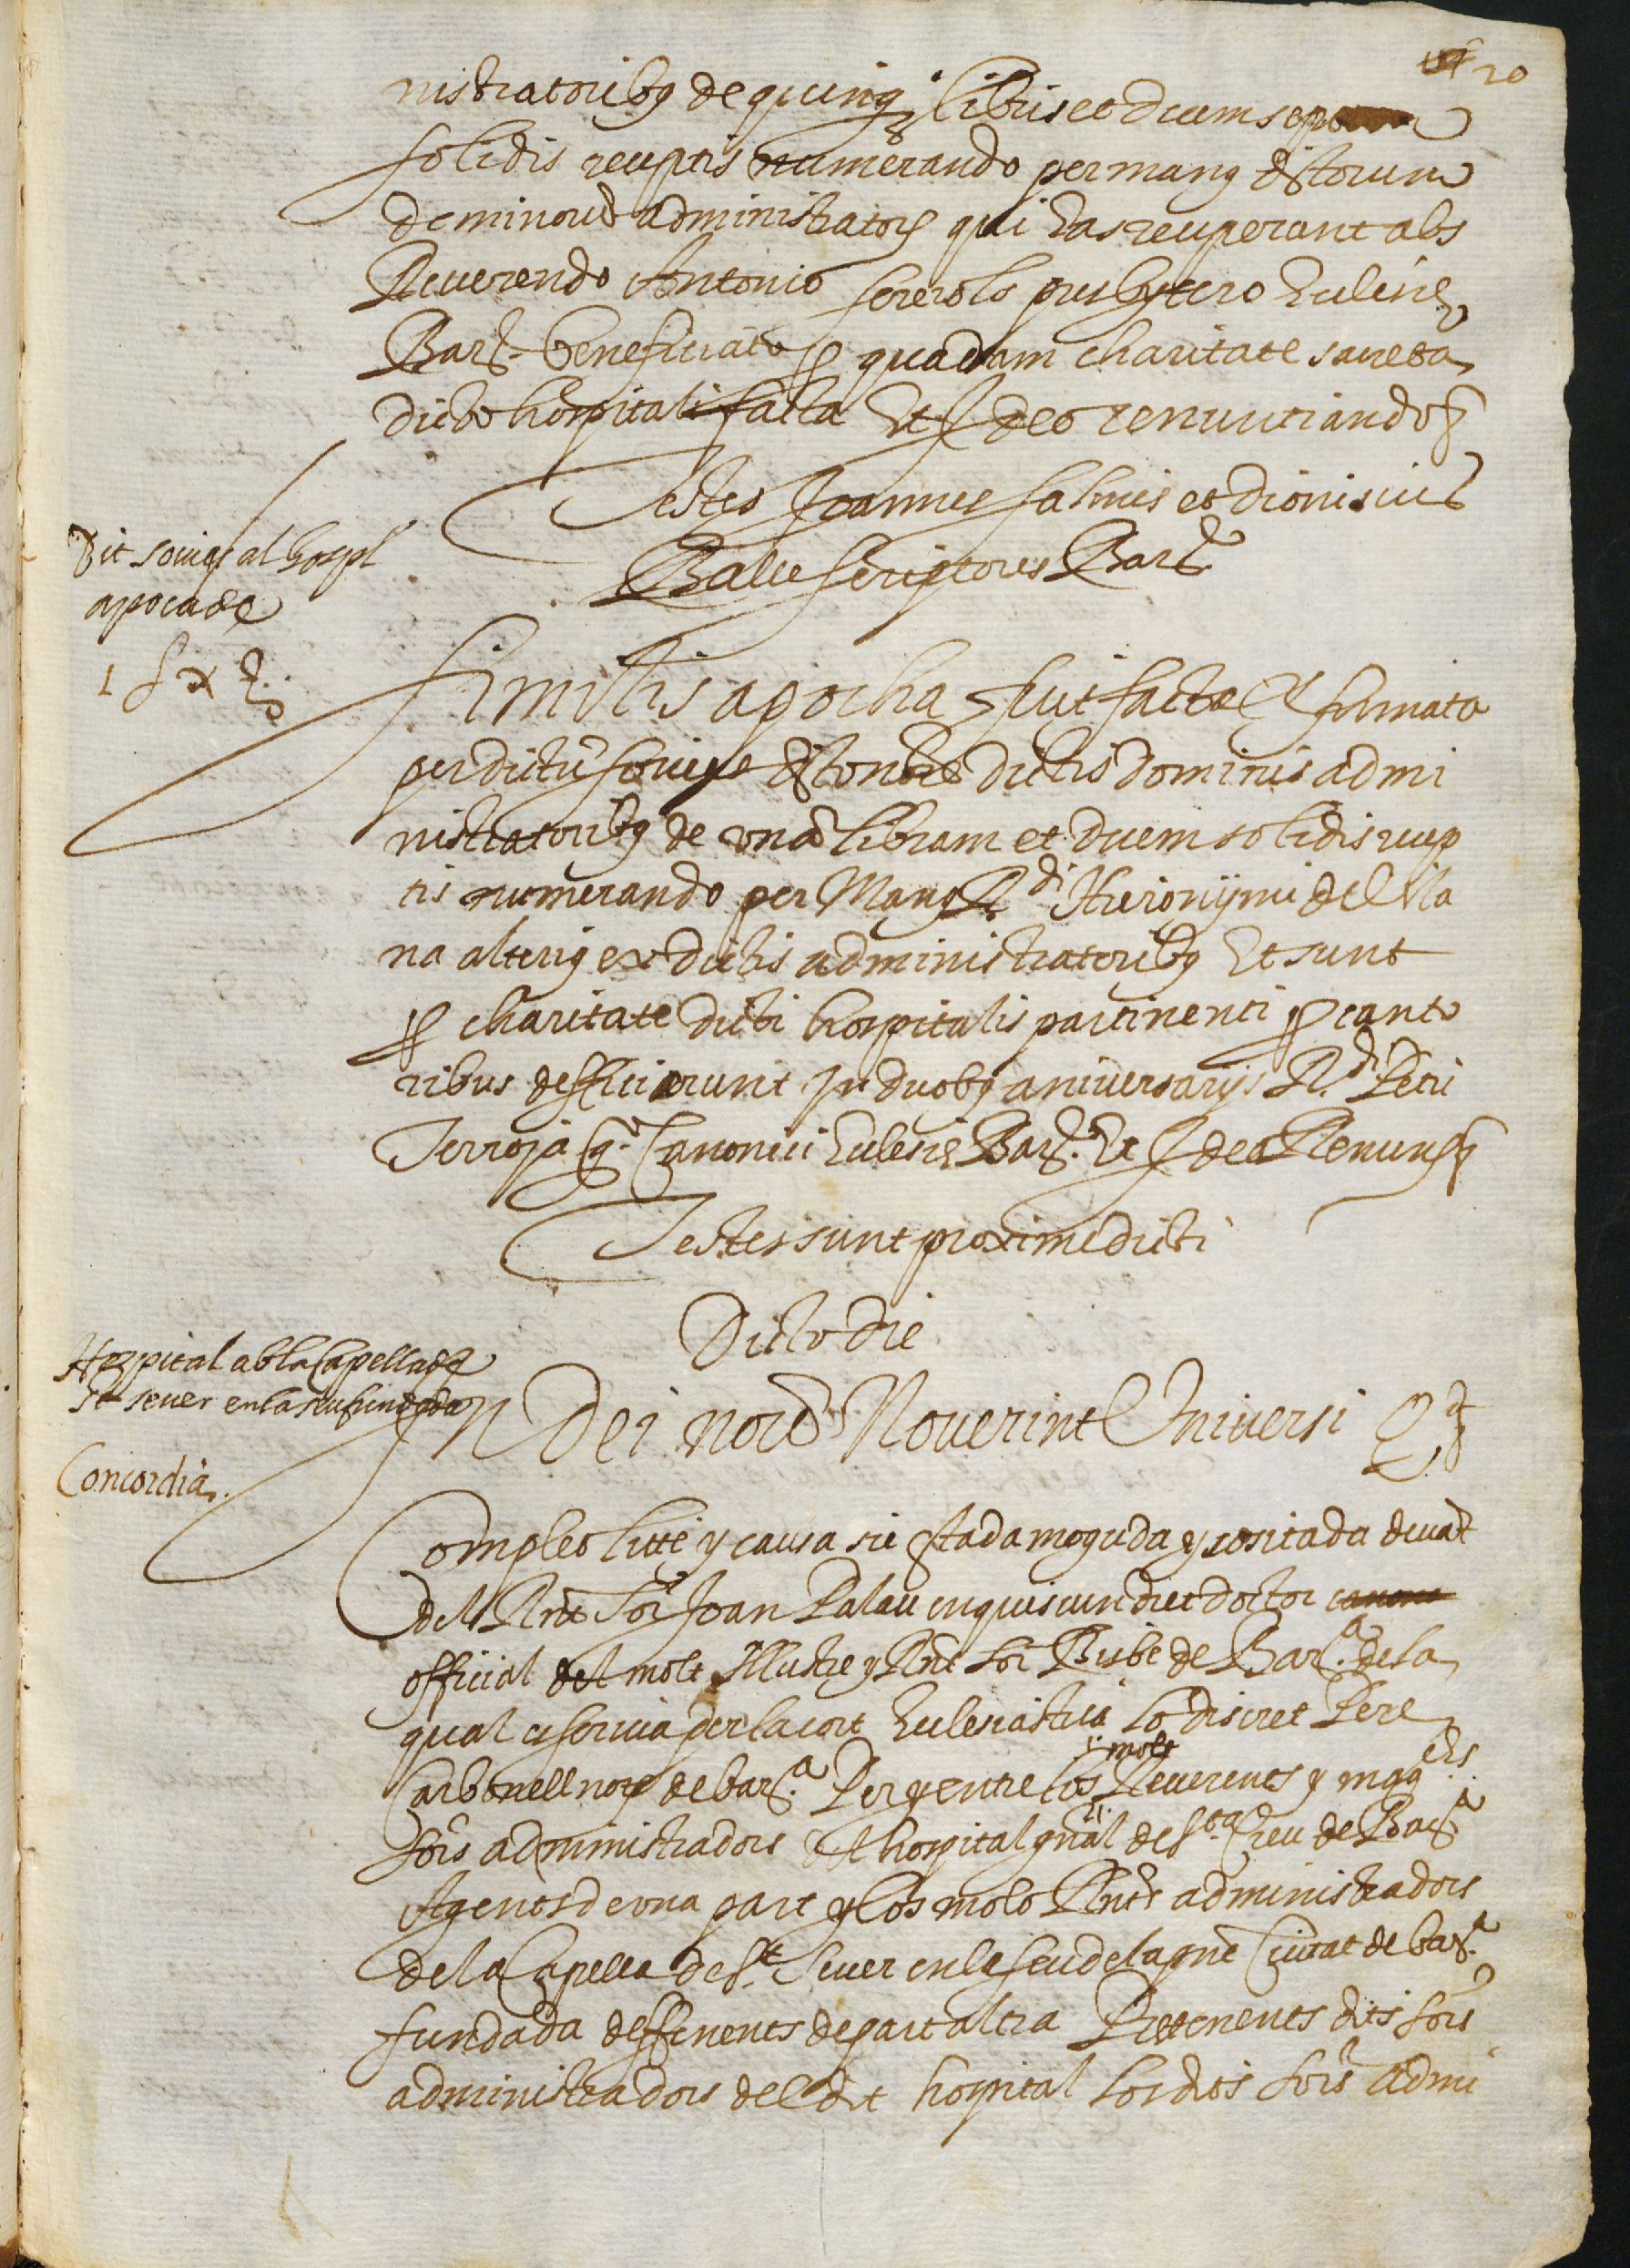 20
nistratoribꝰ de quinqꝫ libris et decem sep
solidis receptis numerando per manꝰ dictorum
dominorũ administratorũ qui eas receperunt abs
Reverendo Antonio sererols presbytero Eclesie
Barᵉ beneficiato ꝓ quadam charitate sancta
dicto hospitali facta Et ideo renuntiando &
Testes Joannes salines et dionisius
Bale scriptores Barᵉ
Dit sonige al hospl
apoca de
1 ℔ x ẜ
Similis apocha fuit facta et firmata
per dictũ sonige dictis dominis admi
nistratoribꝰ de una libram et decem solidis recep
tis numerando per Manꝰ Rᵈⁱ Hieronymi dellila
na alteriꝰ ex dictis administratoribꝰ Et sunt
ꝓ charitate dicti hospitalis partinenti ꝓ canto
ribus defficierunt in duobꝰ aniversarijs R.ᵈⁱ Petri
Terroja q.ᵒ Canonici Eclesie Barᵉ. Et ideo Renun &
Testes sunt proxime dicti
Dicto die
Hospital ab la Capella de
St sever en la seu fundada
Concordia.
In Dei noīe Noverint Universi Qᵈ &
Com pleo litte y causa sie stada moguda y sositada devãt
del Rñt sor Joan Palau en quiscun dret doctor canone
official del molt Illustre y Rñt sor Bisbe de Bar.ᵃ de la
qual es scriva per la cort Eclesiastica lo discret Pere
Carbonell notᵉ de bar.ᵃ Per y entre los molt Reverents y mag.ᶜʰˢ
sors administradors del hospital gñal de S.ᵗᵃ Creu de Barᵃ
Agents de una part y los molt Rñts administradors
de la Capella de S.ᵗ Sever en la seu de la pñt Ciutat de bar.ᵃ
fundada deffenents de part altra Pretenents dits sors
administradors del dit hospital los dits sors admi